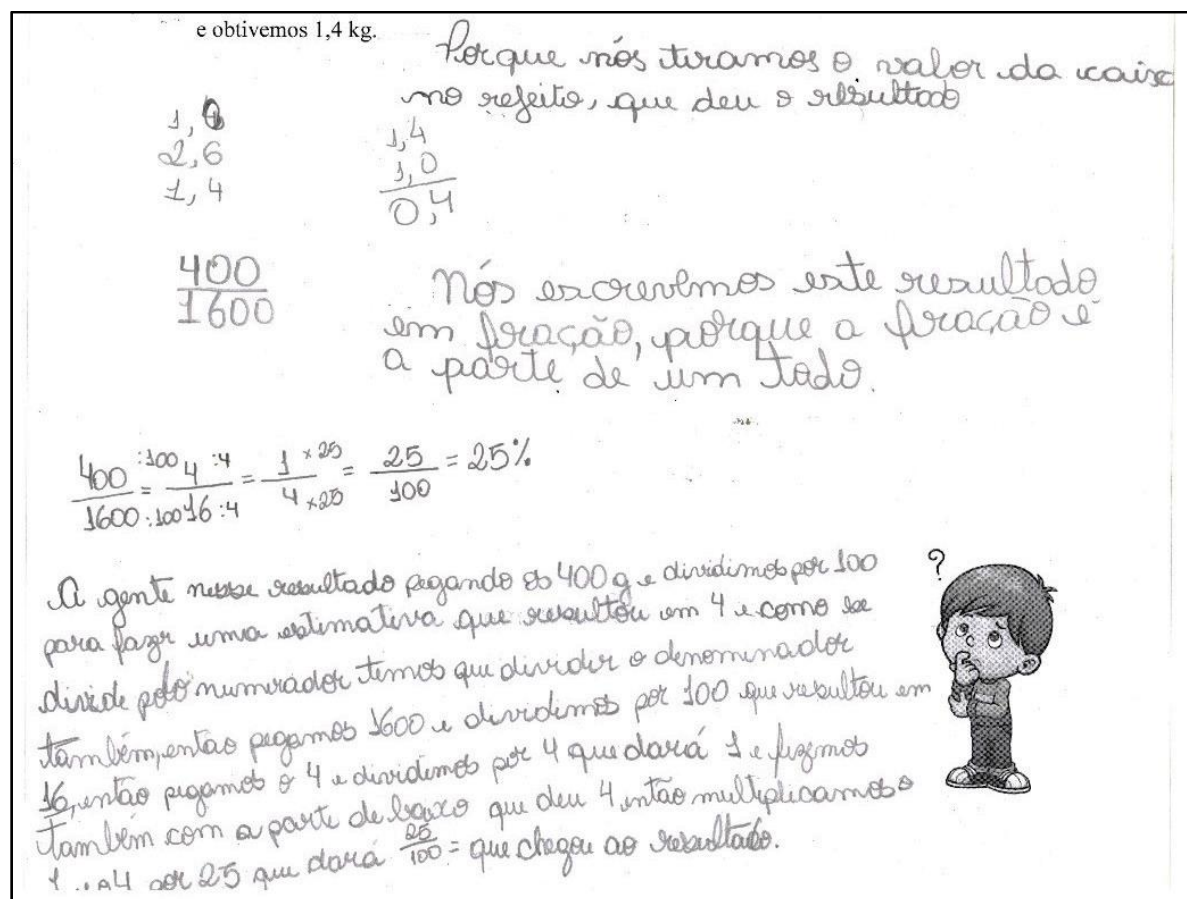 e obtivemos 1,4 kg.
Porque nós tiramos o valor da caixa
no refeito, que deu o resultado
1,0
2,6
1,4
1,4
1,0
0,4
400
1600
Nós escrevemos este resultado
em fração, porque a fração é
a parte de um todo.
400 :100 4 :4 1 x 25 25
= = = = 25%
1600 :100 16 :4 4 x25 100
A gente nesse resultado pegando os 400 g e dividimos por 100
para fazer uma estimativa que resultou em 4 e como se
divide pelo numerador temos que dividir o denominador
também, então pegamos 1600 e dividimos por 100 que resultou em
16, então pegamos o 4 e dividimos por 4 que dará 1 e fizemos
também com a parte de baixo que deu 4 então multiplicamos o
1 e 4 por 25 que dará 25/100 = que chegou ao resultado.
?